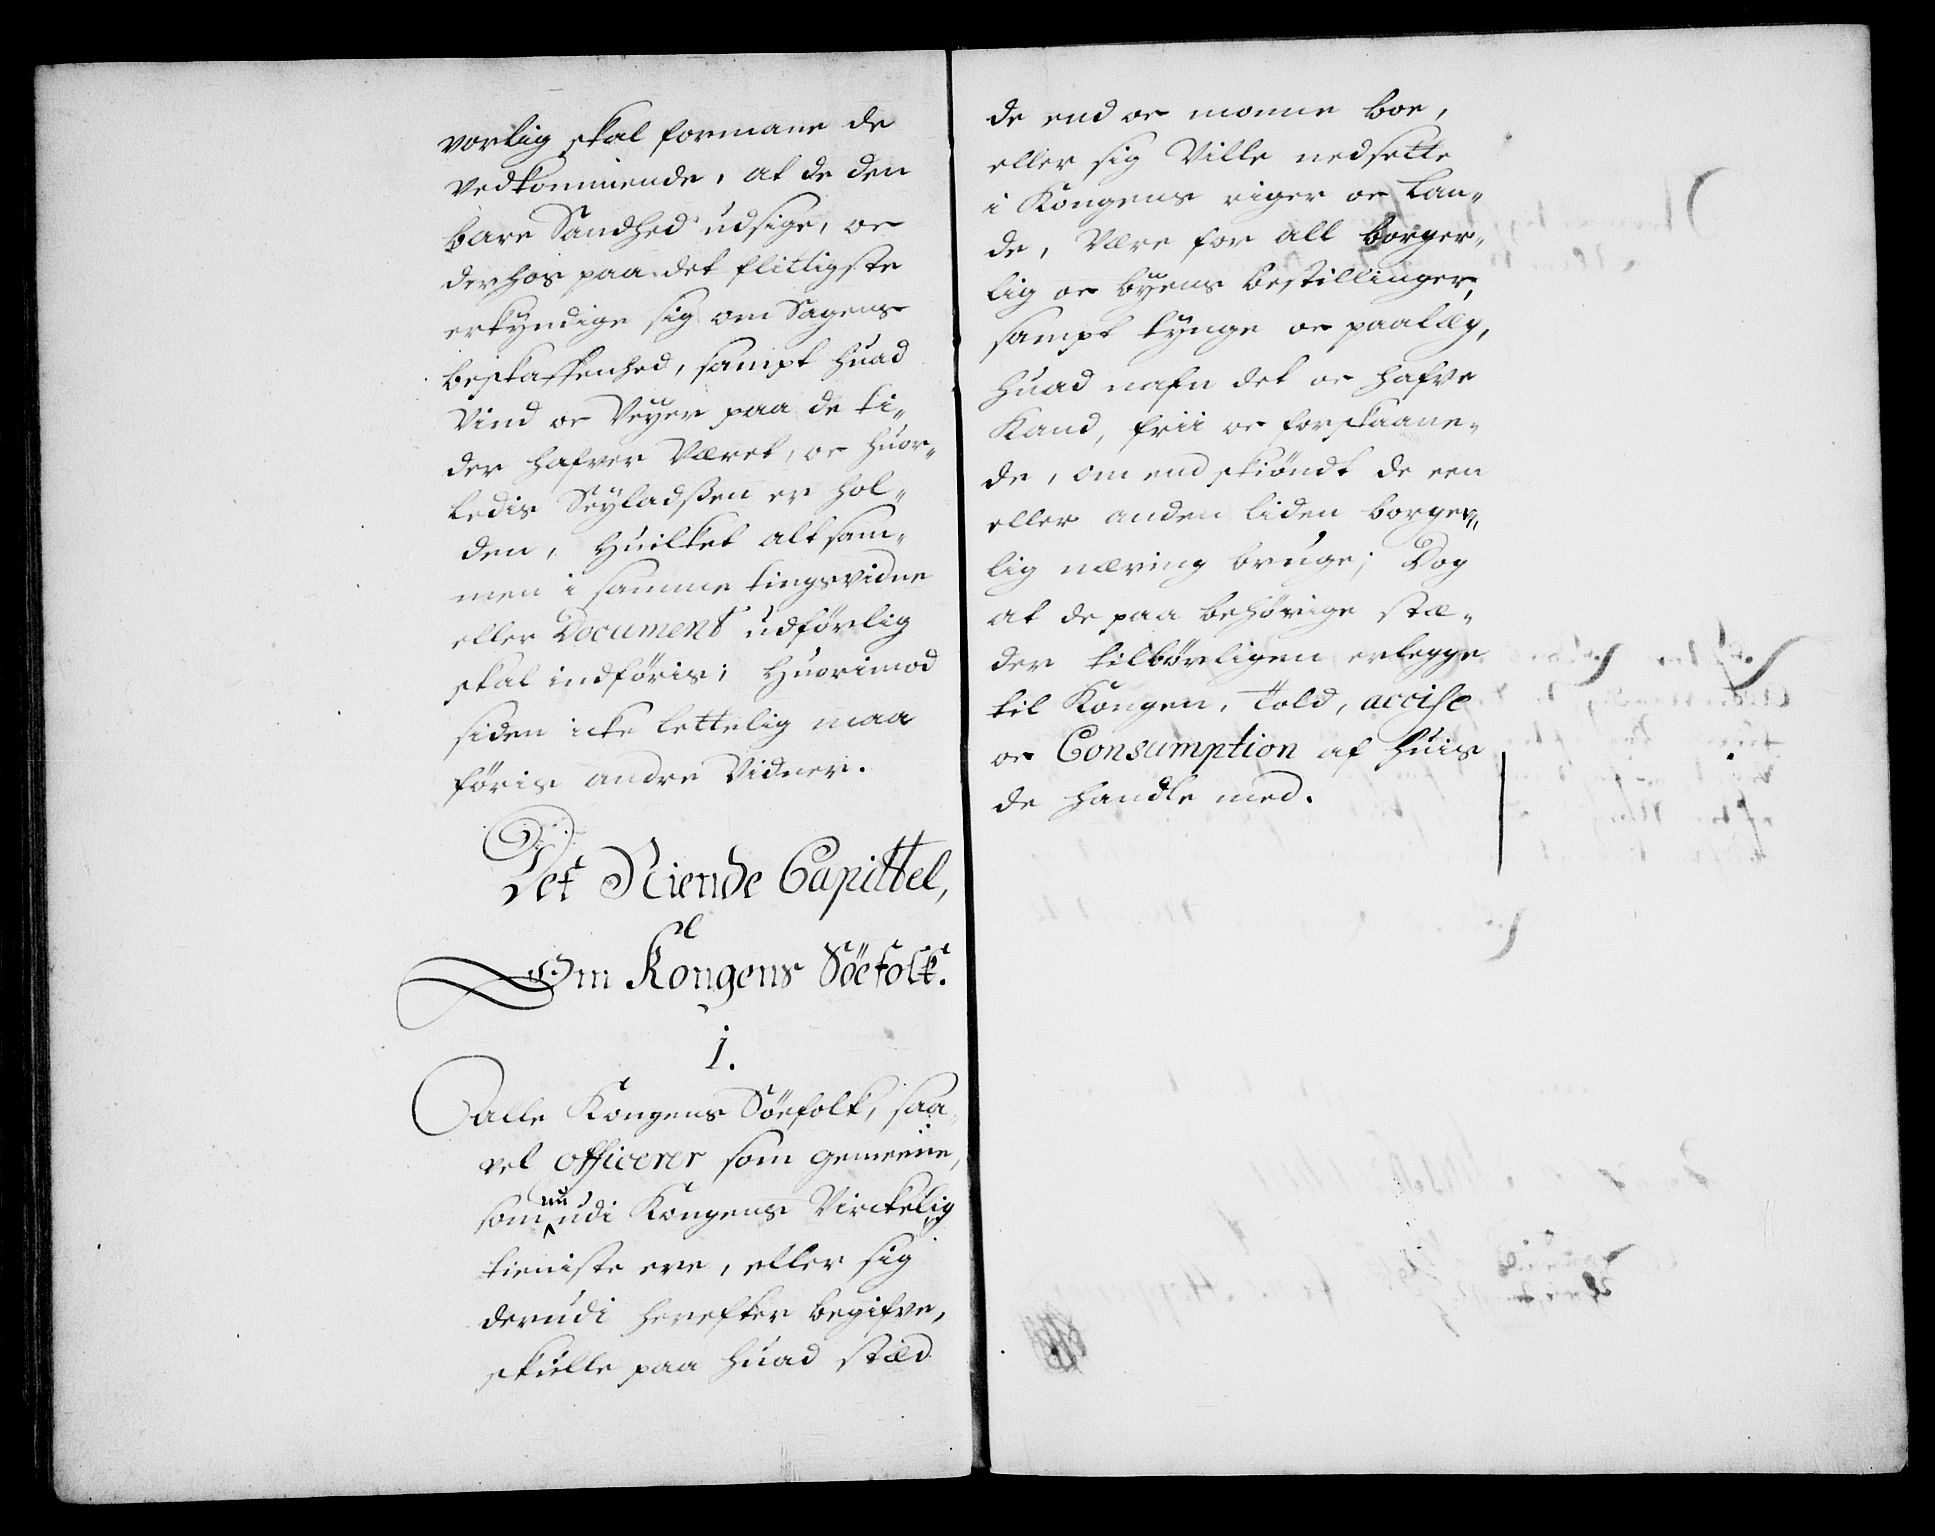 vorlig skal formane de
vedkommende, at de den
bare Sandhed udsige, oc
derhos paa det flittigste
erkyndige sig om Sagens
beskaffenhed, sampt huad
Vind oc Veyer paa de ti-
der hafver Været, oc huor-
ledis Seyladßen er hol-
den, Huilket altsam-
men i samme tingsvidne
eller Document udförlig
skal indföris; Huorimod
siden icke lettelig maa
föris andre Vidner.
Det Niende Capittel,
Om Kongens Söefolk.
1.
Alle Kongens Söefolk, saa-
vel officerer som gemeene,
som nu udi Kongens Virckelig
tieniste ere, eller sig
derudi herefter begifve,
skulle paa huad stæd
de end oc monne boe,
eller sig Ville nedsette
i Kongens riger oc Lan-
de, Være for all borger-
lig oc byens bestillinger,
sampt tynge oc paalæg,
huad nafn det oc hafve
Kand, frii oc forskaane-
de, om end skiöndt de een
eller anden liden borger-
lig næring bruge; Dog
at de paa behörige stæ-
der tilbörligen erlegge
til Kongen, Told, accise
oc Consumption af huis
de handle med.